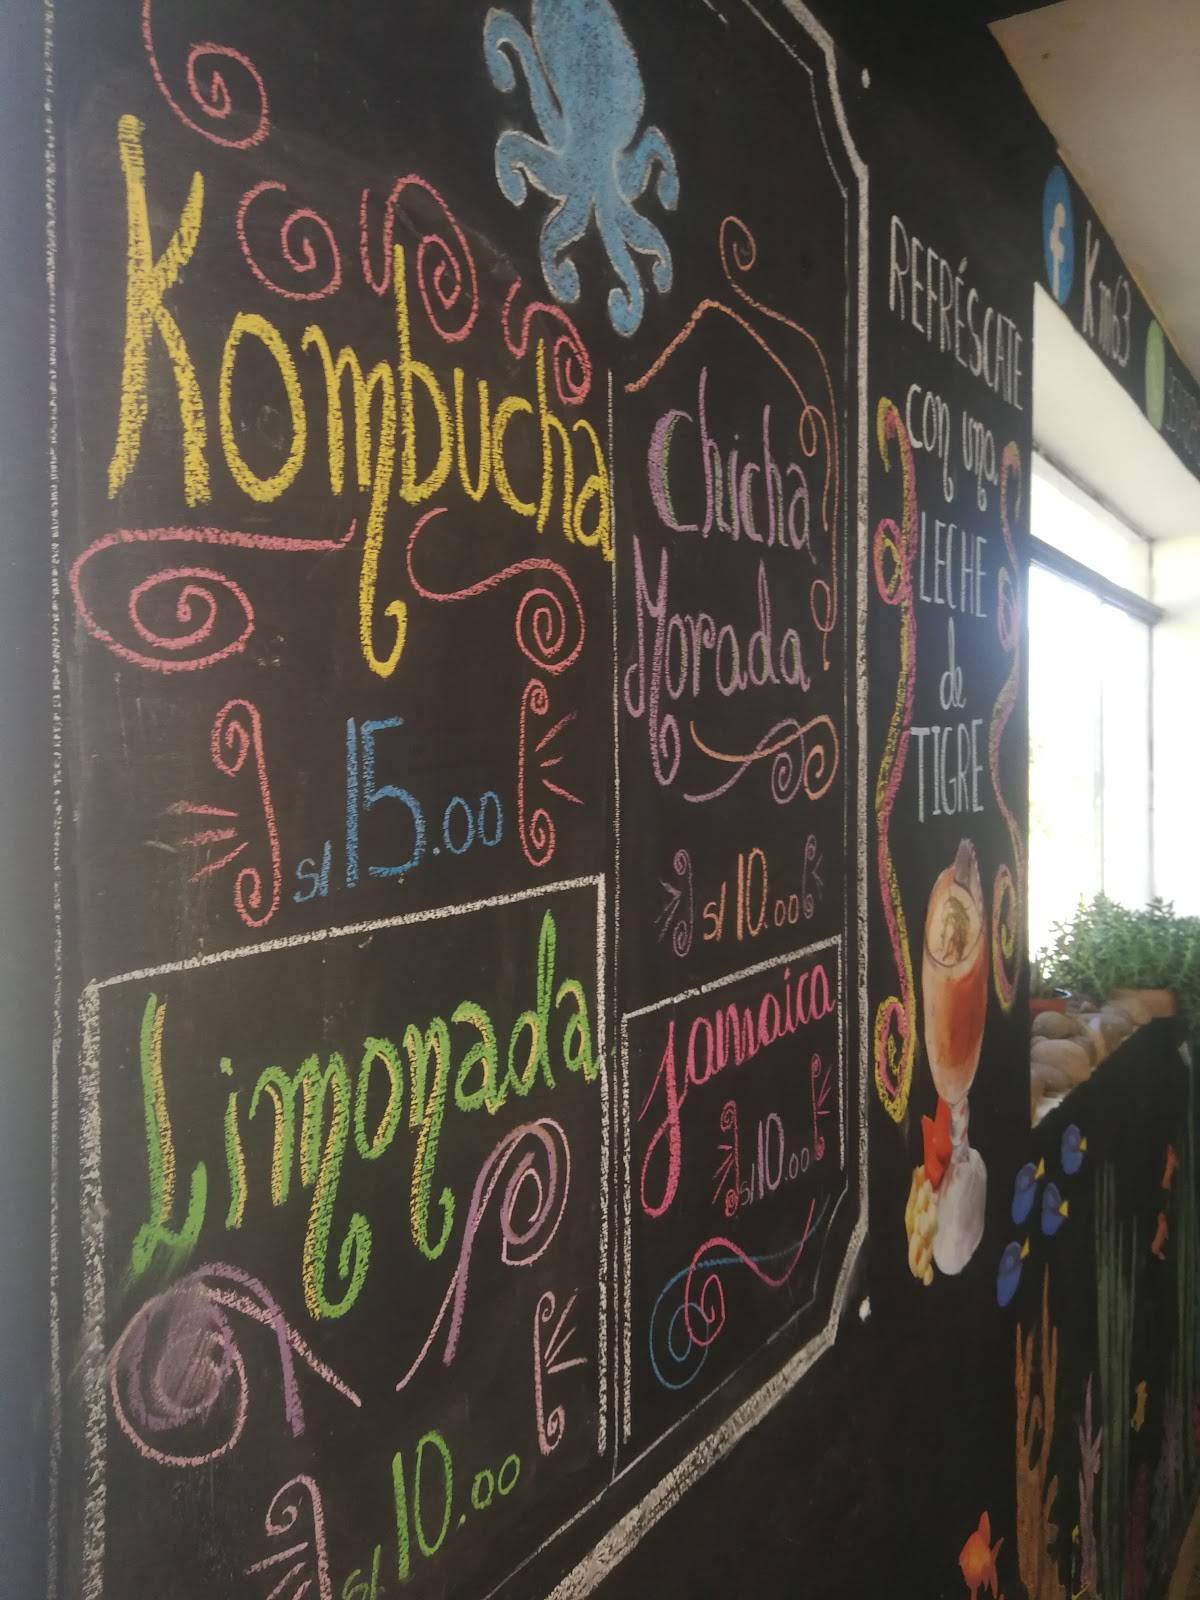 Kombucha
S/. 15.00
Limonada
S/. 10.00
Chicha
Morada
S/ 10.00
Jamaica
S/ 10.00
REFRÉSCATE
con una
LECHE
de
TIGRE
f Km63